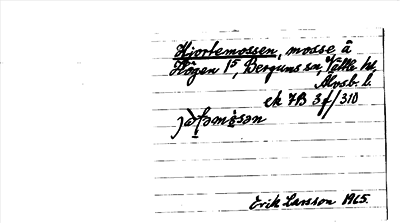 Hjortemossen, mosse å
Högen 1⁵, Bergums sn, Vättle hd,
Älvsb. l.
ek 7B 3f/310
Erik Larsson 1965.